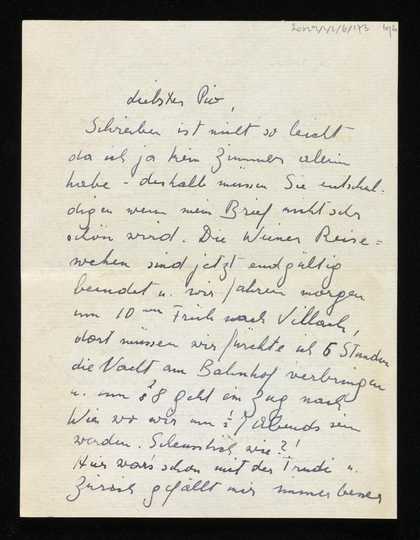 liebster Piv,
Schreiben ist nicht so leicht
da ich ja kein Zimmer allein
habe - deshalb müssen Sie entschul-
digen wenn mein Brief nicht sehr
schön wird. Die Wiener Reise=
wehen sind jetzt endgültig
beendet u. wir fahren morgen
um 10 Früh nach Villach,
dort müssen wir fürchte ich 6 Stunden
die Nacht am Bahnhof verbringen
u. um 8 geht ein Zug nach
Wien wo wir um abends sein
werden. Scheusslich wie?!
Hier war's schön mit der Trude u.
Zürich gefällt mir immer besser